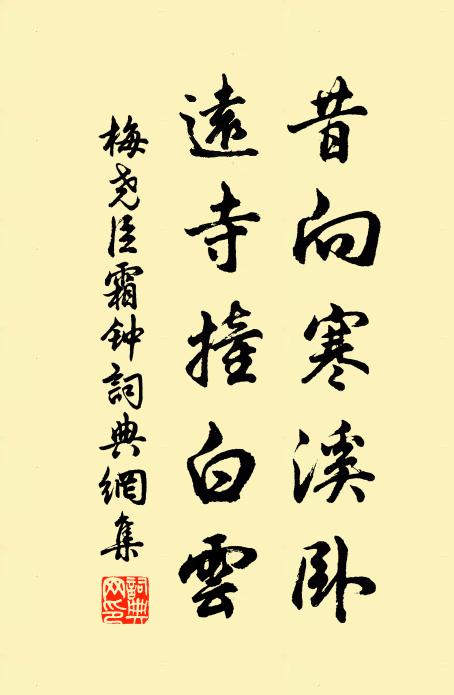 昔向寒溪卧
遠寺撞白雲
梅尧臣霜钟詞典網集
詞典網印